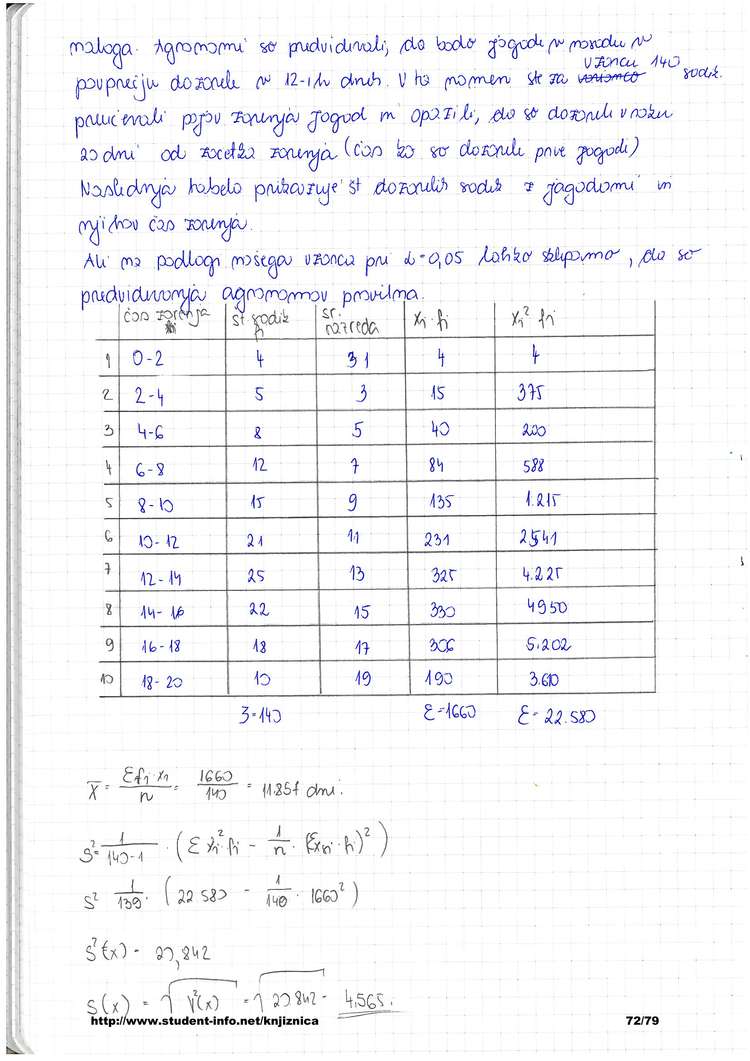 naloga. Agronomi so predvidevali, da bodo jagode v nasadu v
povprečju dozorele v 12-ih dneh. V ta namen ste za vzorcu 140 sadik.
preučevali pojav zorenja jagod in opazili, da so dozorele v roku
20 dni od začetka zorenja (čas ko so dozorele prve jagode)
Naslednja tabela prikazuje št dozorelih sadik z jagodami in
njihov čas zorenja.
Ali na podlagi našega vzorca pri α=0,05 lahko sklepamo, da so
predvidevanja agronomov pravilna.
čas zorenja št. sadik fi sr. razreda xi·fi xi² fi
1 0-2 4 1 4 4
2 2-4 5 3 15 375
3 4-6 8 5 40 200
4 6-8 12 7 84 588
5 8-10 15 9 135 1.215
6 10-12 21 11 231 2541
7 12-14 25 13 325 4.225
8 14-16 22 15 330 4950
9 16-18 18 17 306 5.202
10 18-20 10 19 190 3.610
Σ=140 Σ=1660 Σ=22.580
x̄ = Σfi·xi / n = 1660 / 140 = 11.857 dni.
S² = 1 / 140-1 · (Σ xi² fi - 1/n · (Σxi·fi)²)
S² 1/139 · (22 580 - 1/140 · 1660²)
S²(x) = 20,842
S(x) = √V²(x) = √20842 = 4.565.
http://www.student-info.net/knjiznica 72/79